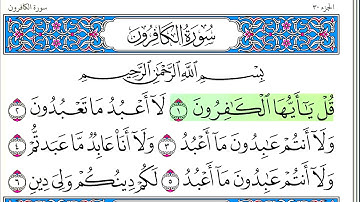 الجزء ٣٠ سورة الكافرون
سُورَةُ الْكَافِرُونَ
بِسْمِ اللَّهِ الرَّحْمَٰنِ الرَّحِيمِ
قُلْ يَا أَيُّهَا الْكَافِرُونَ ١ لَا أَعْبُدُ مَا تَعْبُدُونَ ٢
وَلَا أَنتُمْ عَابِدُونَ مَا أَعْبُدُ ٣ وَلَا أَنَا عَابِدٌ مَّا عَبَدتُّمْ ٤
وَلَا أَنتُمْ عَابِدُونَ مَا أَعْبُدُ ٥ لَكُمْ دِينُكُمْ وَلِيَ دِينِ ٦